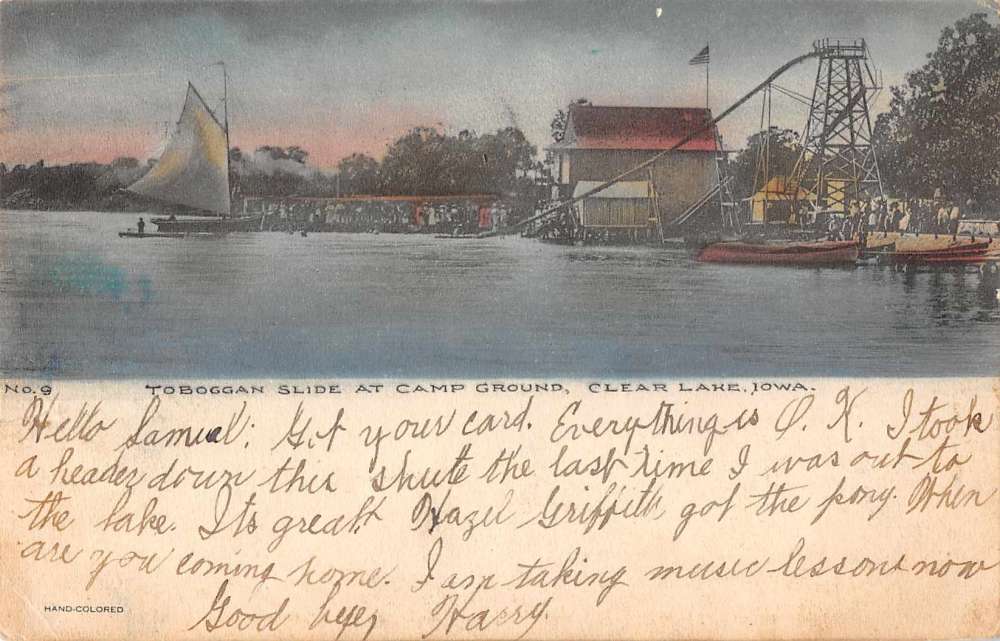 No. 9 TOBOGGAN SLIDE AT CAMP GROUND, CLEAR LAKE, IOWA.
Hello Samuel: Got your card. Everything is O. K. I took
a header down this shute the last time I was out to
the lake. Its great Hazel Griffith got the pony. When
are you coming home. I am taking music lessons now
Good bye, Harry.
HAND-COLORED